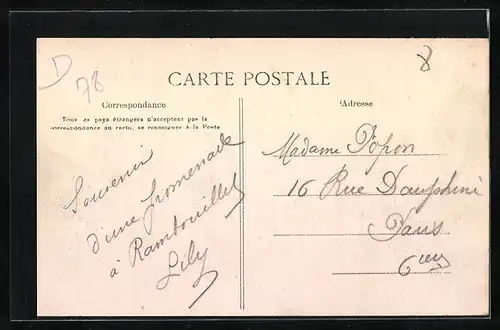 D
78
8
CARTE POSTALE
Correspondance
Tous les pays étrangers n'acceptent pas la
correspondance au recto, se renseigner à la Poste
Souvenir
d'une promenade
à Rambouillet
Lily
Adresse
Madame Popon
16 Rue Dauphine
Paris
6